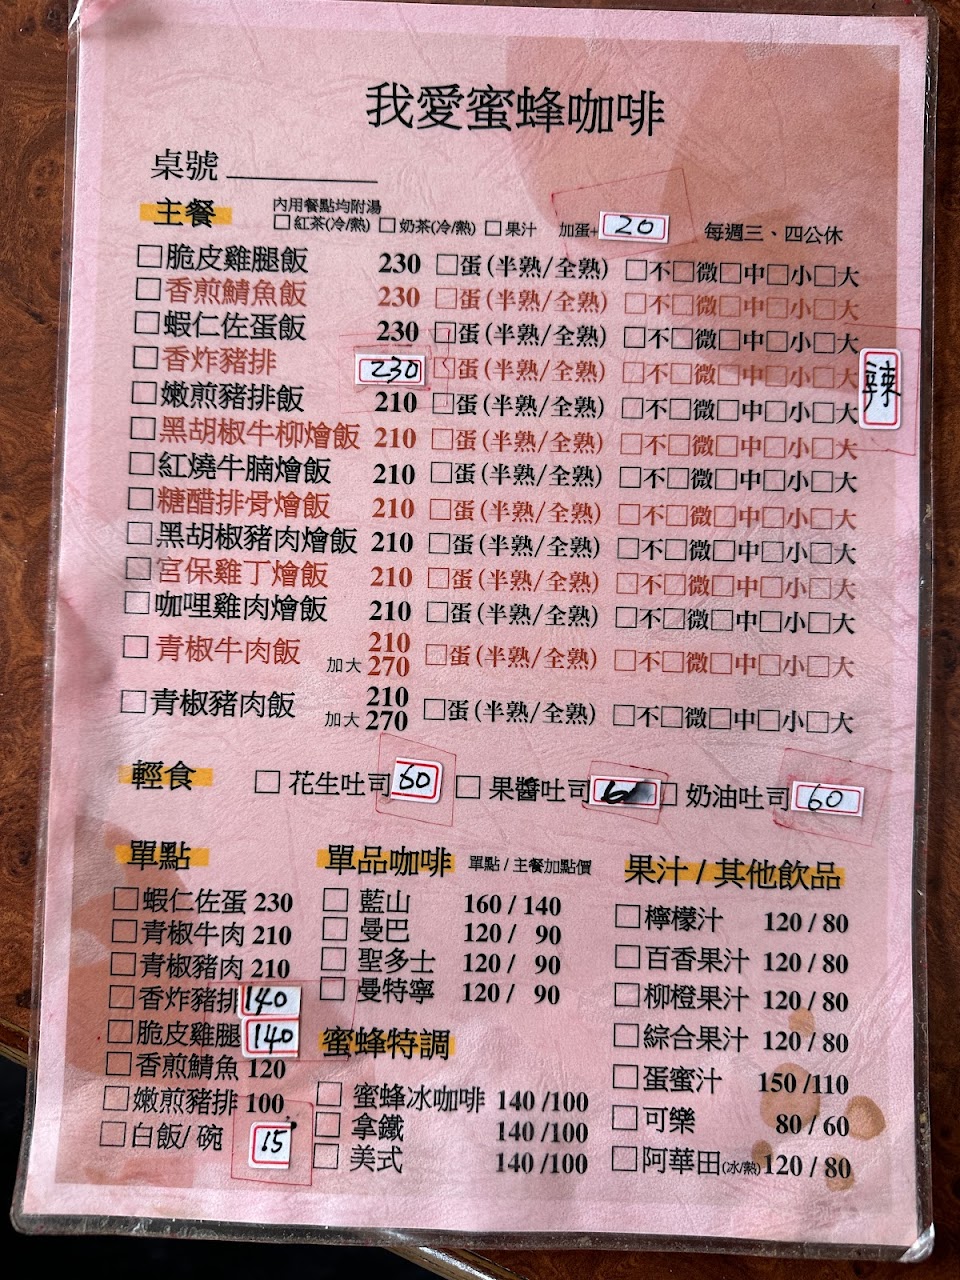 我愛蜜蜂咖啡
桌號
主餐 內用餐點均附湯
□紅茶(冷/熱) □奶茶(冷/熱) □果汁 加蛋+20 每週三、四公休
□脆皮雞腿飯 230 □蛋(半熟/全熟) □不□微□中□小□大
□香煎鯖魚飯 230 □蛋(半熟/全熟) □不□微□中□小□大
□蝦仁佐蛋飯 230 □蛋(半熟/全熟) □不□微□中□小□大
□香炸豬排 230 □蛋(半熟/全熟) □不□微□中□小□大
辣
□嫩煎豬排飯 210 □蛋(半熟/全熟) □不□微□中□小□大
□黑胡椒牛柳燴飯 210 □蛋(半熟/全熟) □不□微□中□小□大
□紅燒牛腩燴飯 210 □蛋(半熟/全熟) □不□微□中□小□大
□糖醋排骨燴飯 210 □蛋(半熟/全熟) □不□微□中□小□大
□黑胡椒豬肉燴飯 210 □蛋(半熟/全熟) □不□微□中□小□大
□宮保雞丁燴飯 210 □蛋(半熟/全熟) □不□微□中□小□大
□咖哩雞肉燴飯 210 □蛋(半熟/全熟) □不□微□中□小□大
□青椒牛肉飯 210 □蛋(半熟/全熟) □不□微□中□小□大
加大 270
□青椒豬肉飯 210 □蛋(半熟/全熟) □不□微□中□小□大
加大 270
輕食 □ 花生吐司 60 □ 果醬吐司 □ 奶油吐司 60
單點
□蝦仁佐蛋 230
□青椒牛肉 210
□青椒豬肉 210
□香炸豬排 140
□脆皮雞腿 140
□香煎鯖魚 120
□嫩煎豬排 100
□白飯/碗 15
單品咖啡 單點/主餐加點價
□ 藍山 160 / 140
□ 曼巴 120 / 90
□ 聖多士 120 / 90
□ 曼特寧 120 / 90
蜜蜂特調
□ 蜜蜂冰咖啡 140 /100
□ 拿鐵 140 /100
□ 美式 140 /100
果汁 / 其他飲品
□檸檬汁 120 / 80
□百香果汁 120 / 80
□柳橙果汁 120 / 80
□綜合果汁 120 / 80
□蛋蜜汁 150 /110
□可樂 80 / 60
□阿華田(冰/熱) 120 / 80